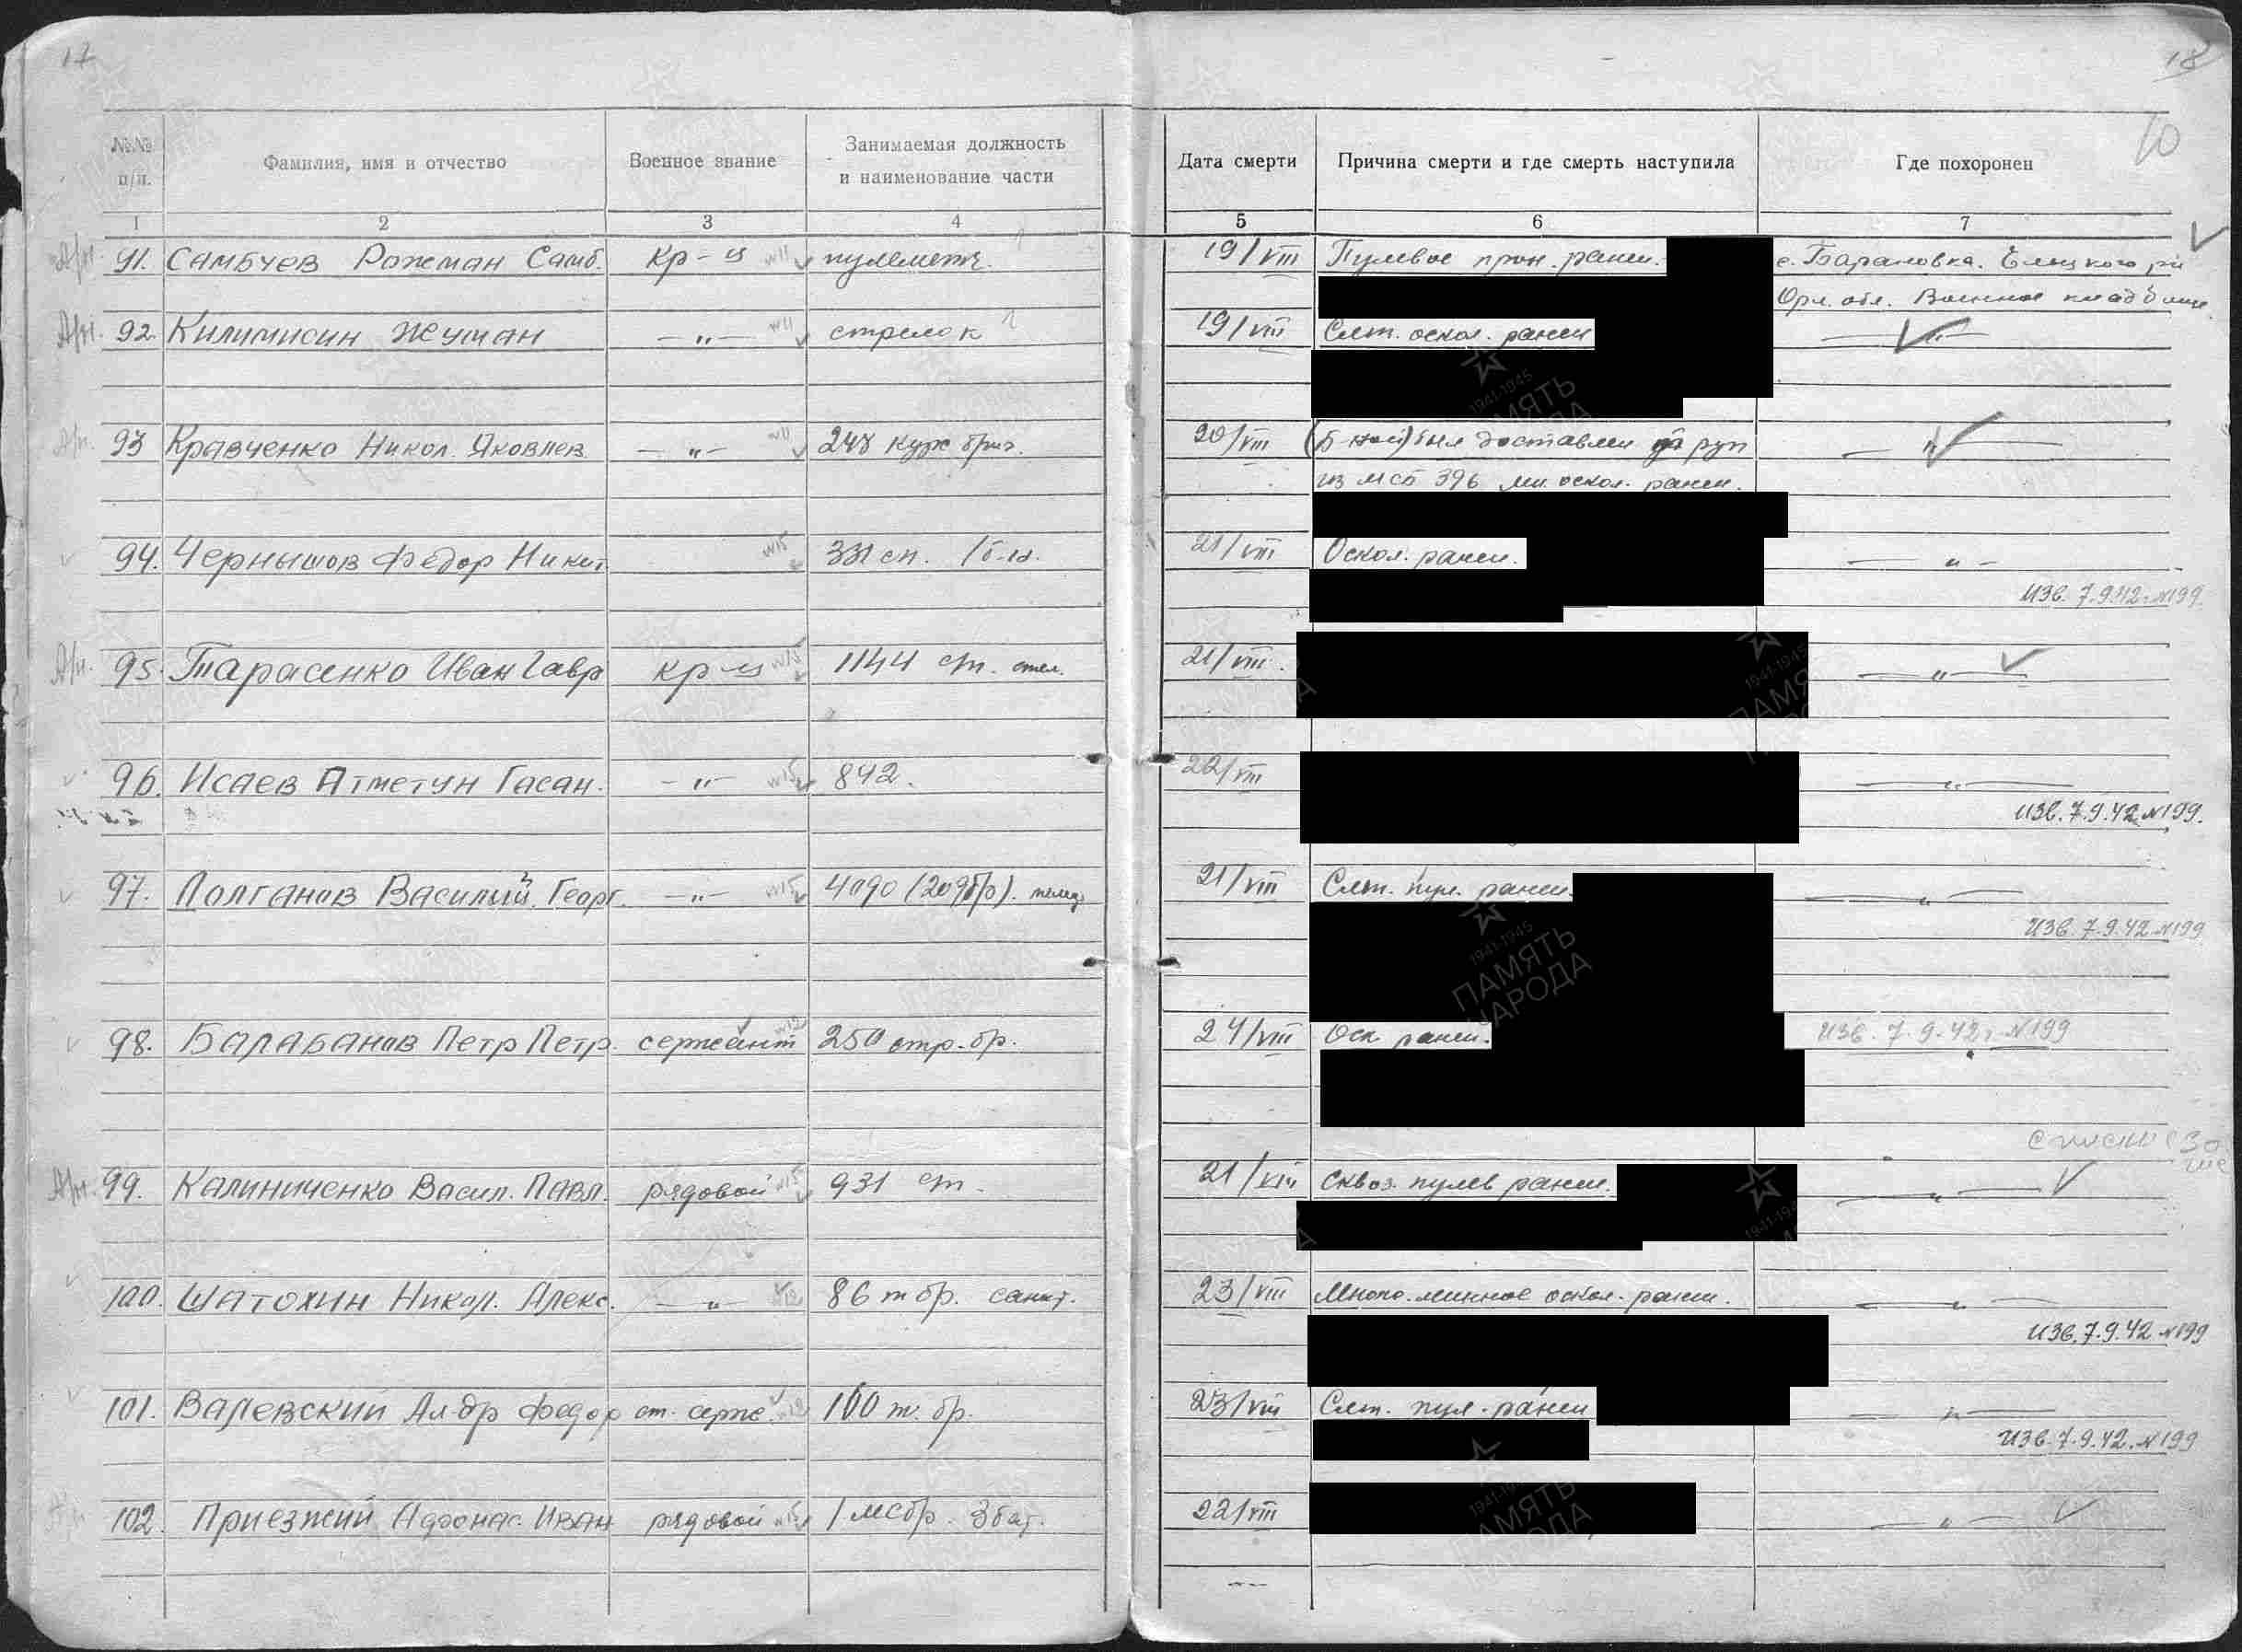 17
18
10
№№ п/п. Фамилия, имя и отчество Военное звание Занимаемая должность и наименование части Дата смерти Причина смерти и где смерть наступила Где похоронен
1 2 3 4 5 6 7
91. Самбуев Рахман Самб. кр-ц пулеметч. 19/VIII Пулевое прон. ранен. с. Барановка. Елецкого
Орл. обл. Военное кладбище
92. Килимисин Жуман —"— стрелок 19/VIII Слеп. оскол. ранен —"—
93 Кравченко Никол. Яковлев. —"— 248 курс бриг. 20/VIII (Б-ной) был доставлен —"—
из мсб 396 мин. оскол. ранен.
94. Чернышов Федор Никит 331 сп. 1б-н. 21/VIII Оскол. ранен. —"—
Изв. 7.9.42г. №199
95. Тарасенко Иван Гавр кр-ц 1144 сп. 21/VIII. —"—
96. Исаев Атметун Гасан. —"— 842. 22/VIII —"—
Изв. 7.9.42 №199.
97. Полганов Василий Георг. —"— 4090 (209бр). 21/VIII Слеп. пул. ранен. —"—
Изв. 7.9.42 №199
98. Балабанов Петр Петр. сержант 250 стр. бр. 24/VIII Оск. ранен. Изв. 7.9.42г. №199
99. Калиниченко Васил. Павл. рядовой 931 сп. 21/VIII Сквоз. пулев ранен. —"—
100. Шатохин Никол. Алекс. —"— 86 т бр. санит. 23/VIII Много. минное оскол. ранен. —"—
Изв. 7.9.42 №199
101. Валевский Ал-др Федор ст. серж. 100 т. бр. 23/VIII Слеп. пул. ранен —"—
Изв. 7.9.42. №199
102. Приезжий Афонас. Иван рядовой 1 мсбр. 3 бат. 22/VIII —"—
1941-1945
ПАМЯТЬ
НАРОДА